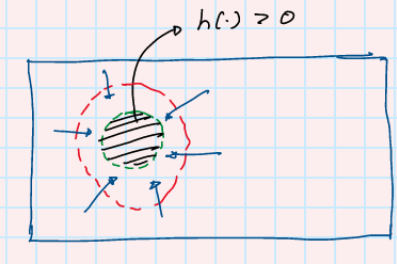 h(·) > 0